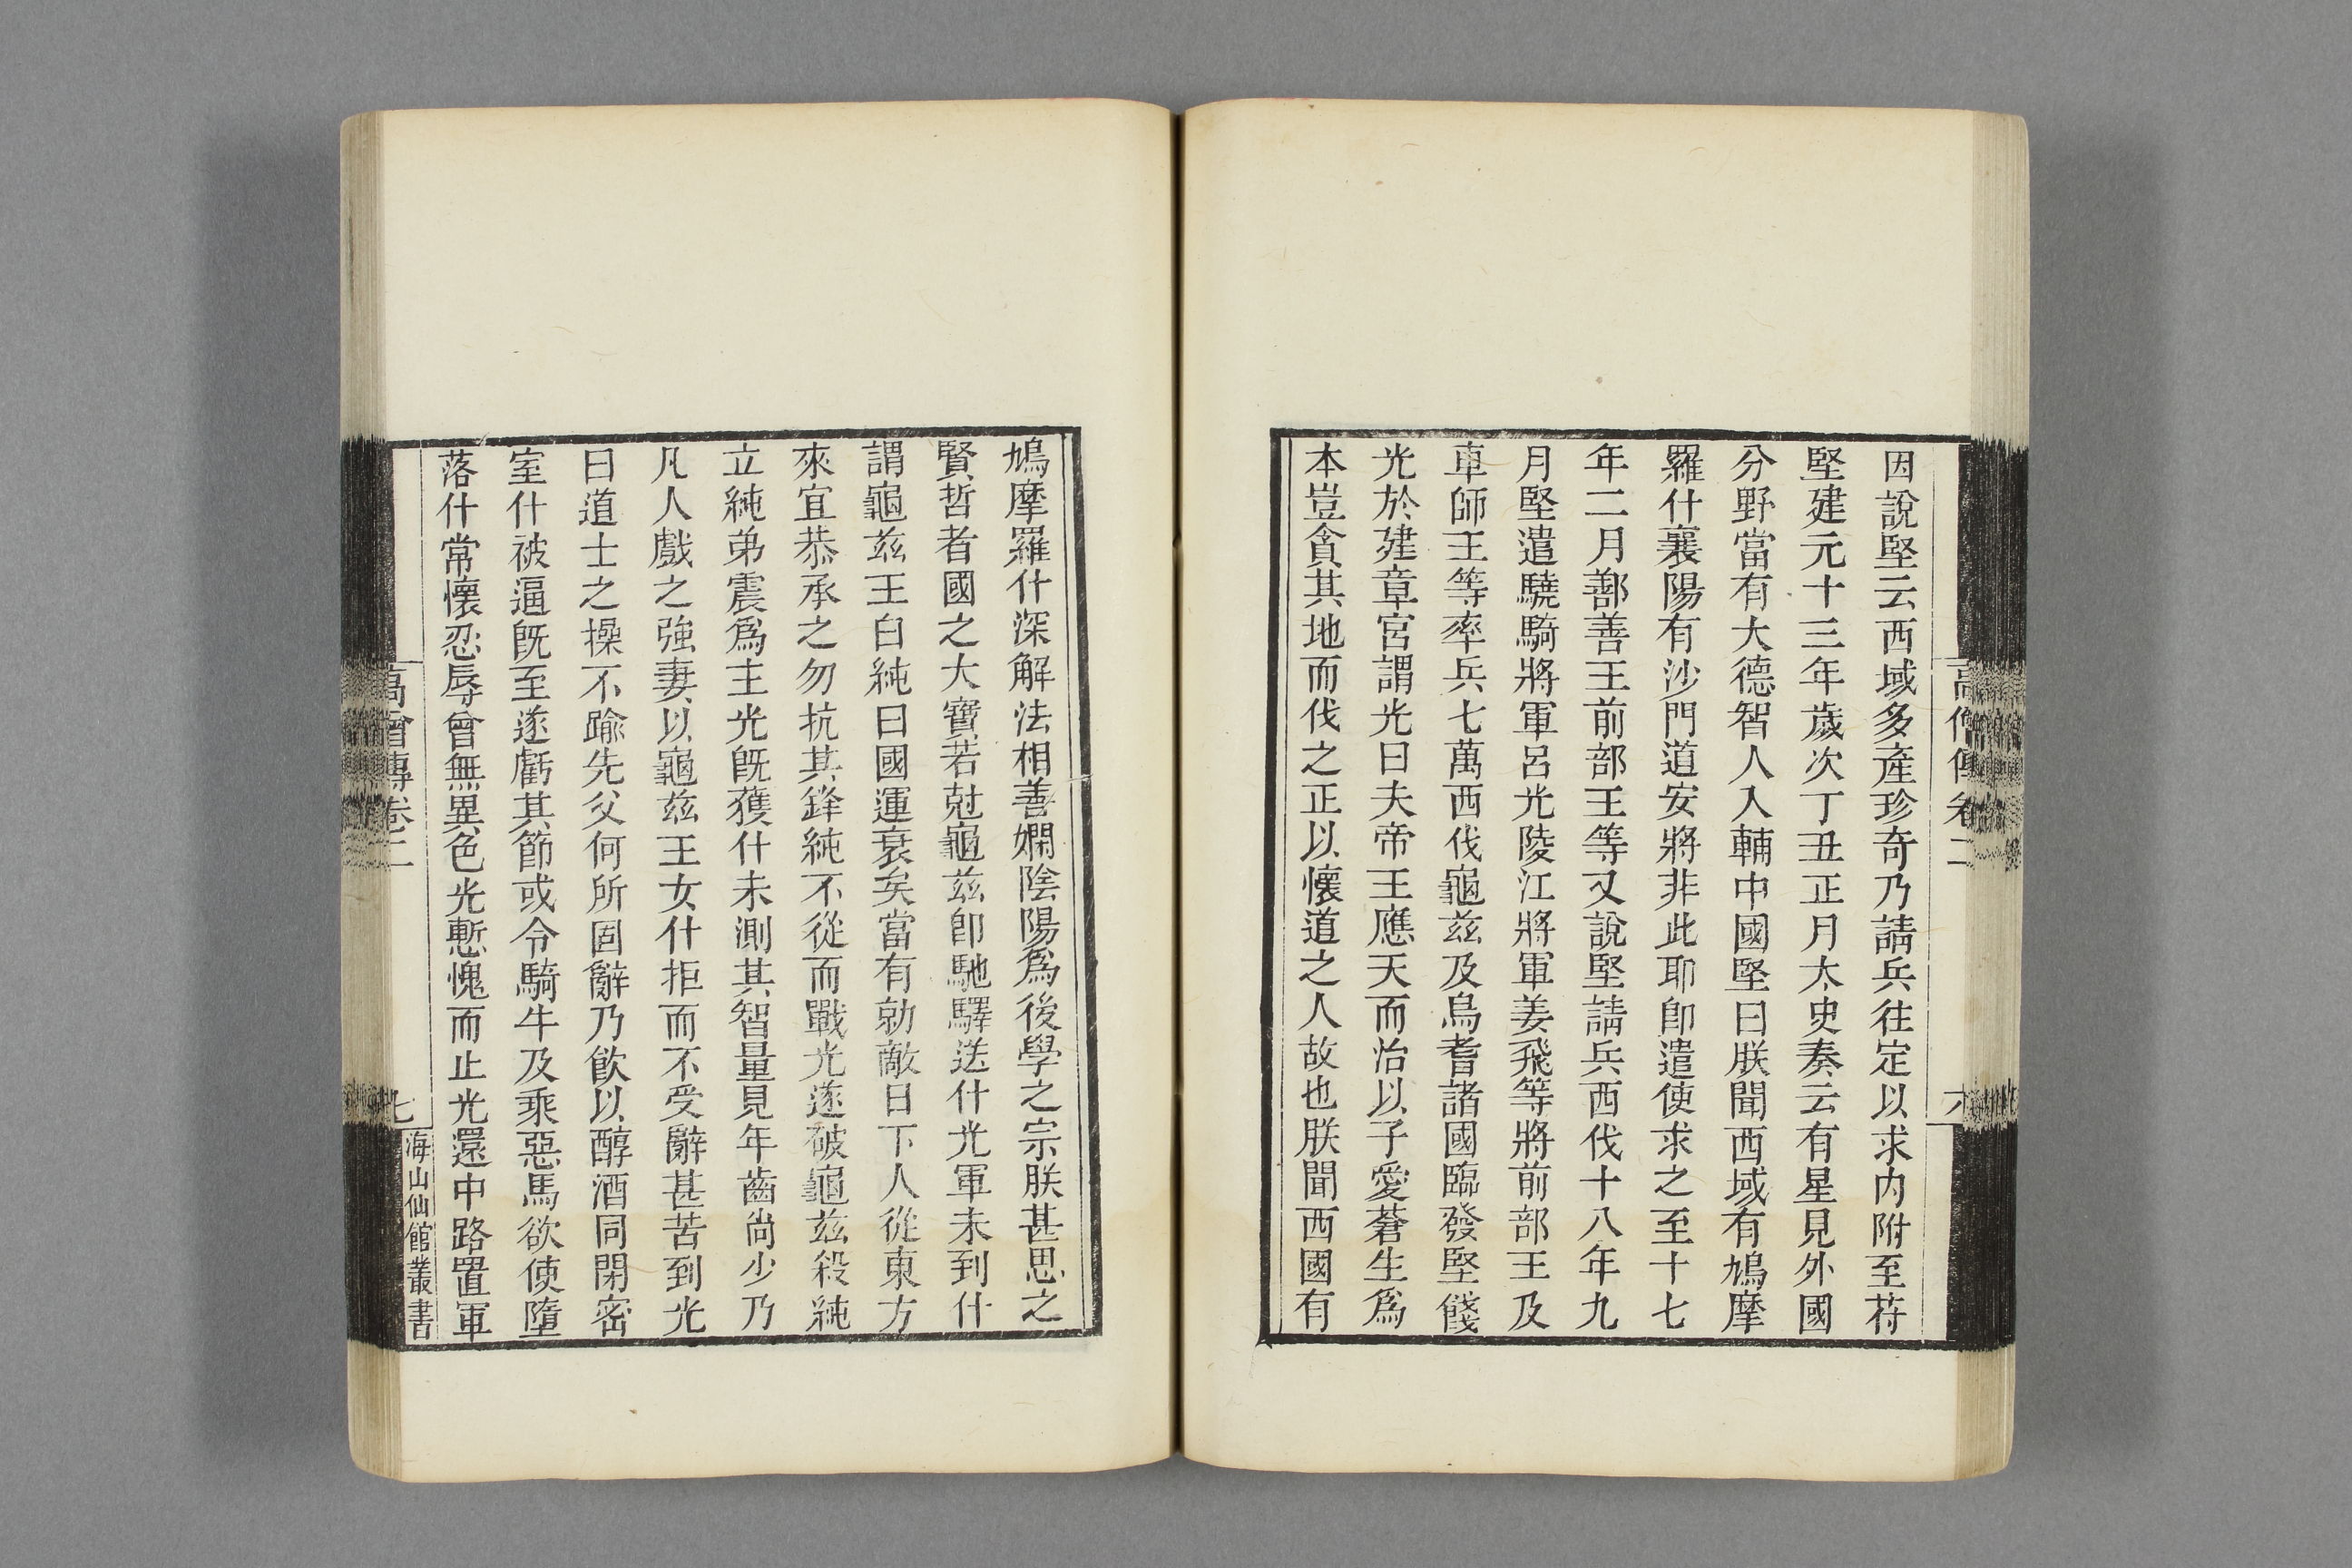 高僧傳卷二
六
因說堅云西域多產珍奇乃請兵往定以求內附至苻
堅建元十三年歲次丁丑正月太史奏云有星見外國
分野當有大德智人入輔中國堅曰朕聞西域有鳩摩
羅什襄陽有沙門道安將非此耶卽遣使求之至十七
年二月鄯善王前部王等又說堅請兵西伐十八年九
月堅遣驍騎將軍呂光陵江將軍姜飛等將前部王及
車師王等率兵七萬西伐龜茲及烏耆諸國臨發堅餞
光於建章宮謂光曰夫帝王應天而治以子愛蒼生爲
本豈貪其地而伐之正以懷道之人故也朕聞西國有
鳩摩羅什深解法相善嫻陰陽爲後學之宗朕甚思之
賢哲者國之大寶若尅龜茲卽馳驛送什光軍未到什
謂龜茲王白純曰國運衰矣當有勍敵日下人從東方
來宜恭承之勿抗其鋒純不從而戰光遂破龜茲殺純
立純弟震爲主光旣獲什未測其智量見年齒尙少乃
凡人戲之強妻以龜茲王女什拒而不受辭甚苦到光
曰道士之操不踰先父何所固辭乃飲以醇酒同閉密
室什被逼旣至遂虧其節或令騎牛及乘惡馬欲使墮
落什常懷忍辱曾無異色光慙愧而止光還中路置軍
高僧傳卷二
七
海山仙館叢書